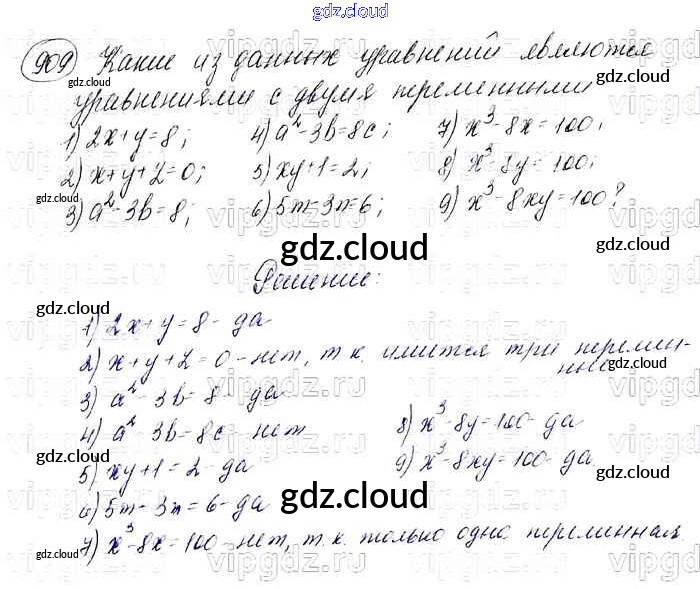 gdz.cloud
909 Какие из данных уравнений являются
уравнениями с двумя переменными
1) 2x+y=8; 4) a²-3b=8c; 7) x³-8x=100;
2) x+y+z=0; 5) xy+1=2; 8) x³-8y=100;
3) a²-3b=8; 6) 5m-3n=6; 9) x³-8xy=100?
Решение:
1) 2x+y=8- да
2) x+y+z=0-нет, т.к. имеется три перемен-
ные
3) a²-3b=8- да
4) a²-3b=8c-нет 8) x³-8y=100- да
5) xy+1=2-да 9) x³-8xy=100- да
6) 5m-3n=6-да
7) x³-8x=100-нет, т.к. только одна переменная.
gdz.cloud
gdz.cloud
gdz.cloud
gdz.cloud
gdz.cloud
gdz.cloud
gdz.cloud
gdz.cloud
gdz.cloud
gdz.cloud
gdz.cloud
gdz.cloud